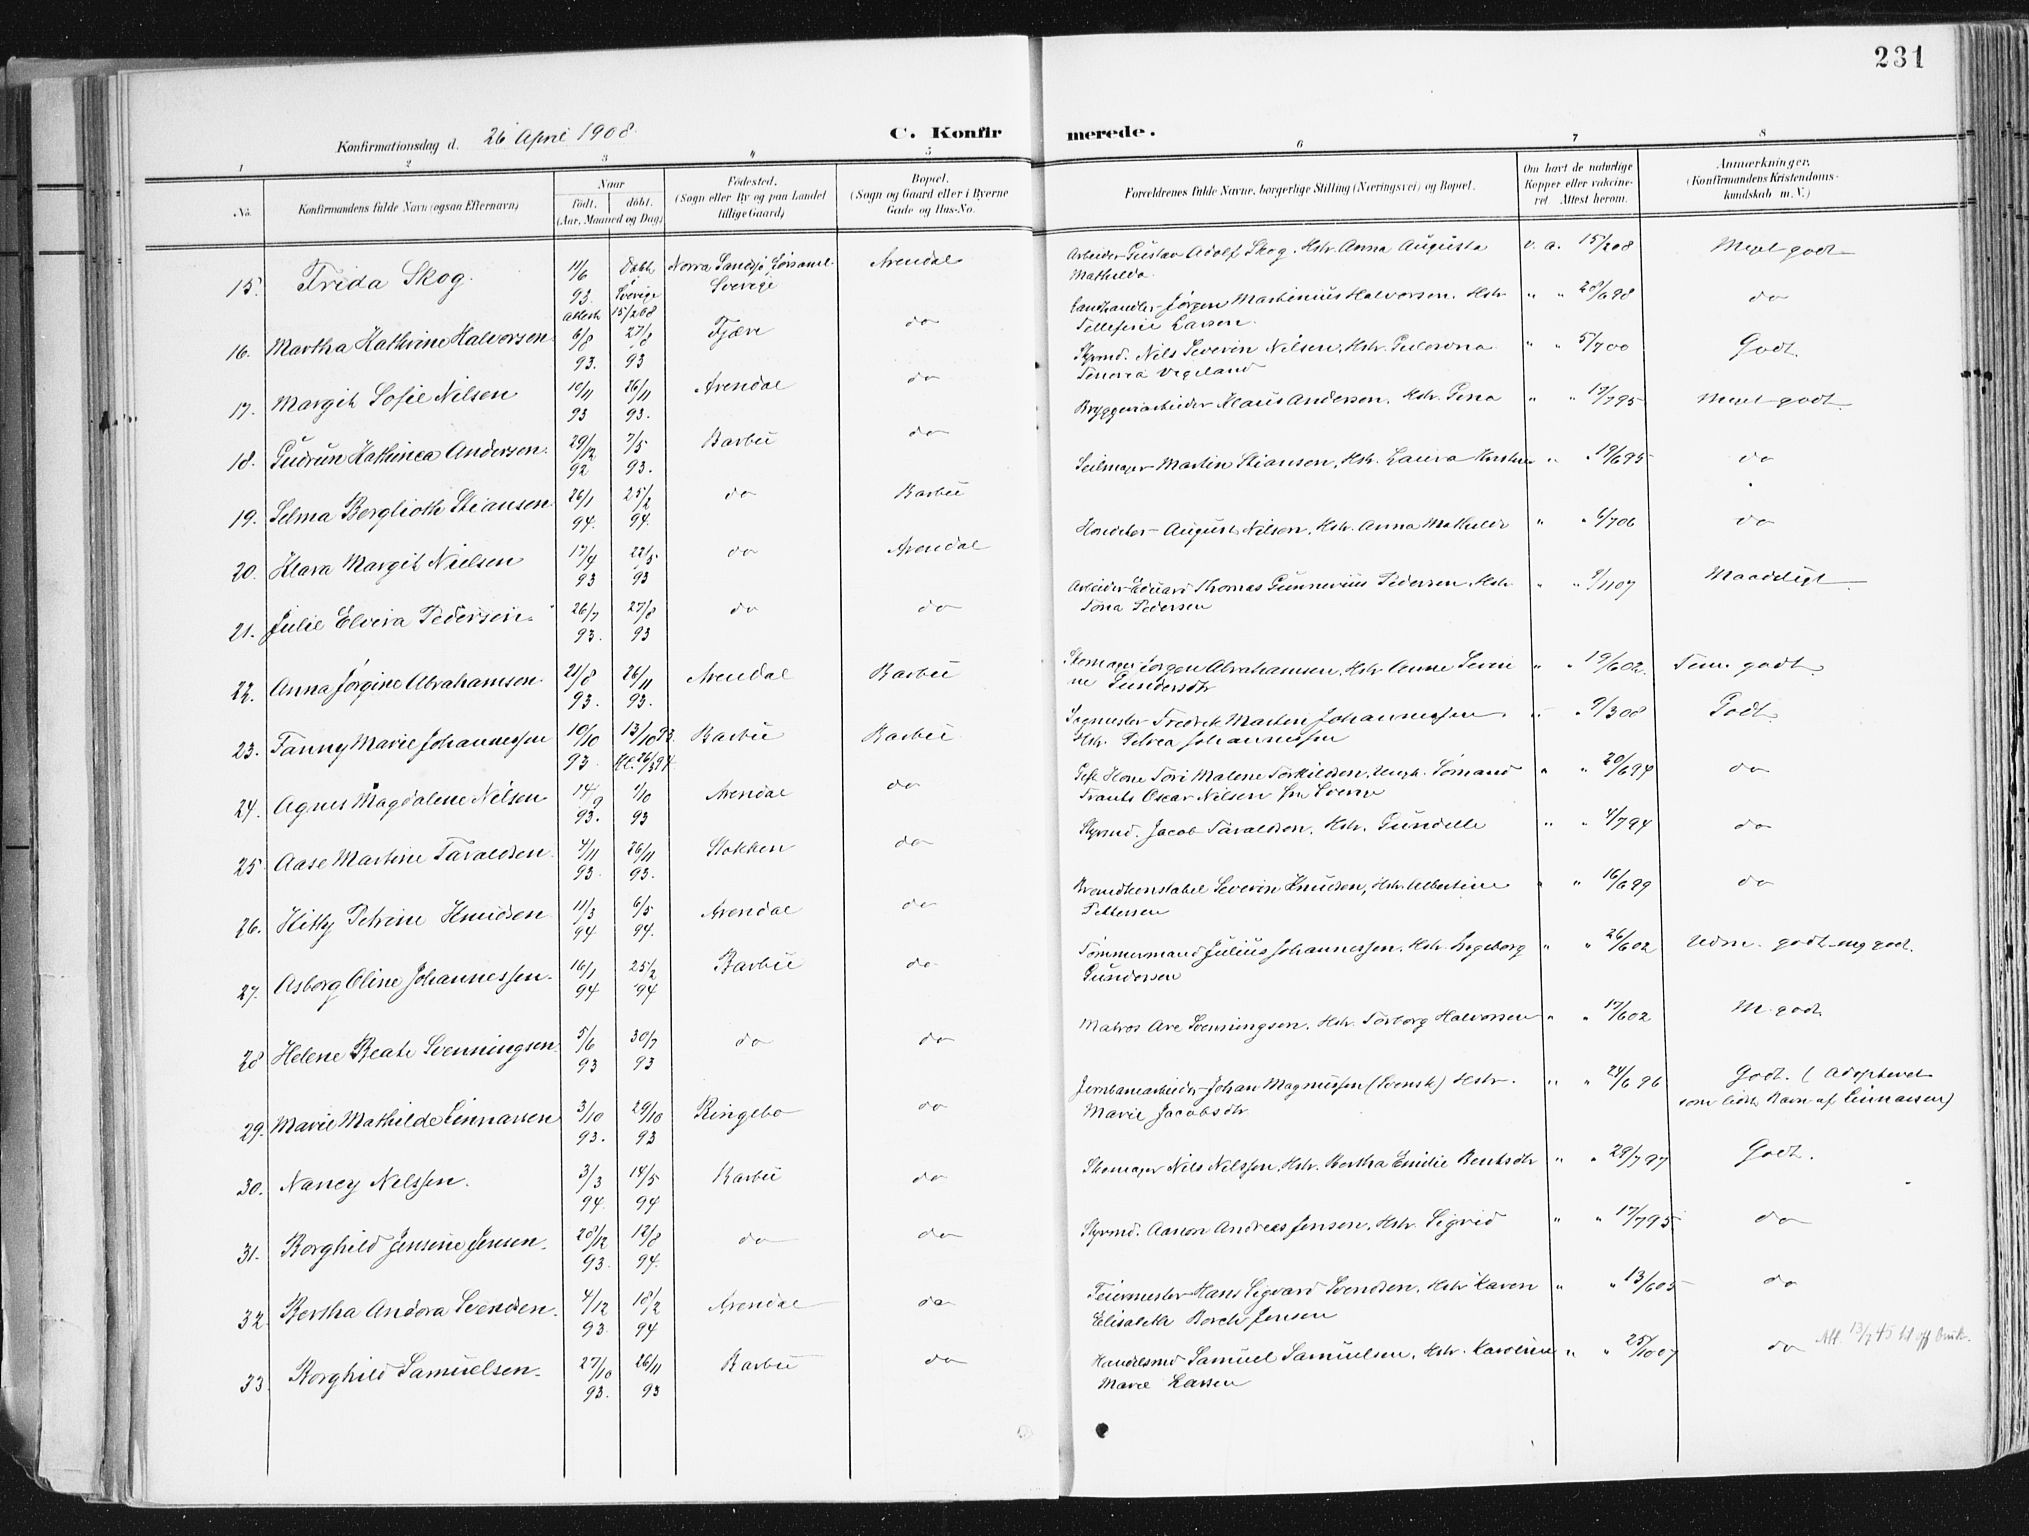 231
Konfirmationsdag d. 26 April 1908. C. Konfirmerede.
1 2 3 4 5 6 7 8
No. Konfirmandens fulde Navn (ogsaa Efternavn) Naar født. døbt. (Aar, Maaned og Dag) Fødested. (Sogn eller By og paa Landet tillige Gaard) Bopæl. (Sogn og Gaard eller i Byerne Gade og Hus-No. Forældrenes fulde Navne, borgerlige Stilling (Næringsvei) og Bopæl. Om havt de naturlige Kopper eller vakcineret. Attest herom. Anmærkninger. (Konfirmandens Kristendomskundskab m. V.)
15. Frida Skog. 11/6 93. Døbt Sverige attest 15/2 08 Norra Sandsjø Sverige Arendal Arbeider Gustav Adolf Skog. Hstr. Anna Augusta Mathilda. v. a. 15/2 08 Meget godt
16. Martha Kathrine Halvorsen 6/8 93. 27/8 93 Fjære do Landhandler Jørgen Martinius Halvorsen. Hstr Tellefine Larsen. " " 28/6 98 do
17. Margit Sofie Nilsen 10/11 93 26/11 93. Arendal do Styrmd. Nils Severin Nilsen. Hstr. Tenorea Vegeland " " 5/7 00 Godt.
18. Gudrun Kathinca Andersen. 29/12 92 7/5 93. Barbu do Bryggeriarbeider Klaus Andersen. Hstr. Gina " " 17/7 95 Meget godt.
19. Selma Berglioth Stiansen 26/1 94. 25/2 94. do Barbu Seilmager Martin Stiansen, Hstr. Laura Kirstine " " 19/6 95 do
20. Klara Margit Nielsen 17/4 93 22/5 93 do Arendal Konditor August Nilsen, Hstr. Anna Mathilde " " 6/7 06 do
21. Julie Elvira Pedersen. 26/7 93. 27/8 93 do do Arbeider Eduard Thomas Gunnerius Pedersen. Hstr. Tona Pedersen " " 9/11 07 Maadeligt
22. Anna Jørgine Abrahamsen 21/8 93. 26/11 93. Arendal Barbu Skomager Jørgen Abrahamsen, Hstr Anne Severine Gundersdtr " " 19/6 02. Tem. godt.
23. Fanny Marie Johannessen 10/10 93. 13/10 93. Kl. 26/3 94 Barbu Barbu Fredrik Marten Johannessen. Hstr. Petrea Johannessen " " 9/3 08 Godt.
24. Agnes Magdalene Nilsen 14/9 93. 1/10 93 Arendal do Gift Kone Tori Malene Torkildsen, Ungk. Sømand Frants Oscar Nilsen fra Sverige " " 20/6 94 do
25. Aase Martine Taraldsen. 4/11 93. 26/11 93. Stokken do Styrmd. Jacob Taraldsen. Hstr. Gundelle " " 4/7 94 do
26. Kitty Petrine Knudsen 11/3 94 6/5 94. Arendal do Brandkonstabel Severin Knudsen, Hstr Albertine Pettersen " " 16/6 99 do
27. Asborg Oline Johannessen. 16/1 94 25/2 94 Barbu do Tømmermand Julius Johannessen. Hstr. Ingeborg Gundersen " " 26/6 02 Udm. godt - meg god.
28 Helene Beate Svenningsen. 5/6 93 30/7 93 do do Matros Are Svenningsen. Hstr. Torborg Halvorsen " " 17/6 02 M. godt.
29. Marie Mathilde Linnarsen 3/10 93. 29/10 93 Ringebo do Jernbanearbeider Johan Magnussen (Svensk) Hstr. Marie Jacobsdtr " " 24/6 96 Godt. (Adopteret som Barn af Linnarsen)
30. Nancy Nelssen. 3/3 94. 14/5 94 Barbu do Skomager Nils Nilssen. Hstr. Bertha Emilie Bentsdtr " " 29/7 97 Godt.
31. Borghild Jensine Jensen. 28/12 93. 12/8 94. do do Styrmd. Aanon Andreas Jensen, Hstr. Sigrid " " 17/7 95 do
32 Bertha Andora Svendsen. 4/12 93. 18/2 94 Arendal do Feiermester Hans Sigvard Svendsen, Hstr Karen Elisabeth Borch Jensen " " 13/6 05 do
33. Borghild Samuelsen. 27/10 93. 26/11 93 Barbu do Handelsmd Samuel Samuelsen, Hstr. Karoline Marie Larsen " " 25/10 07 do Att. 13/7 45 til off. bruk.